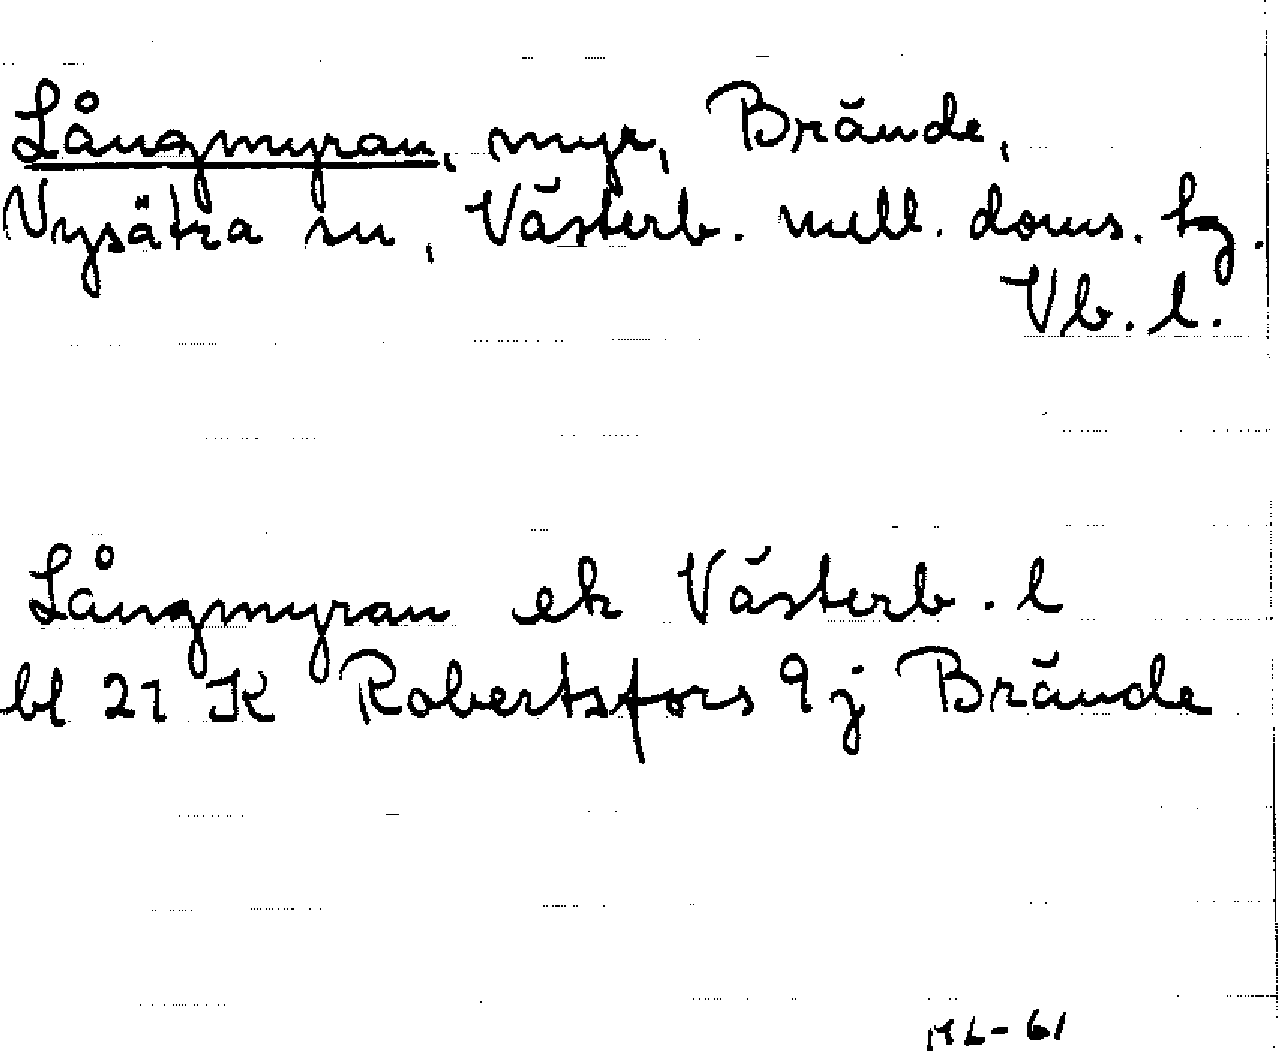 Långmyran, myr, Brände,
Nysätra sn, Västerb. mell. doms. hg.
Vb. l.
Långmyran ek Västerb. l
bl 21 K Robertsfors 9j Brände
ML-61